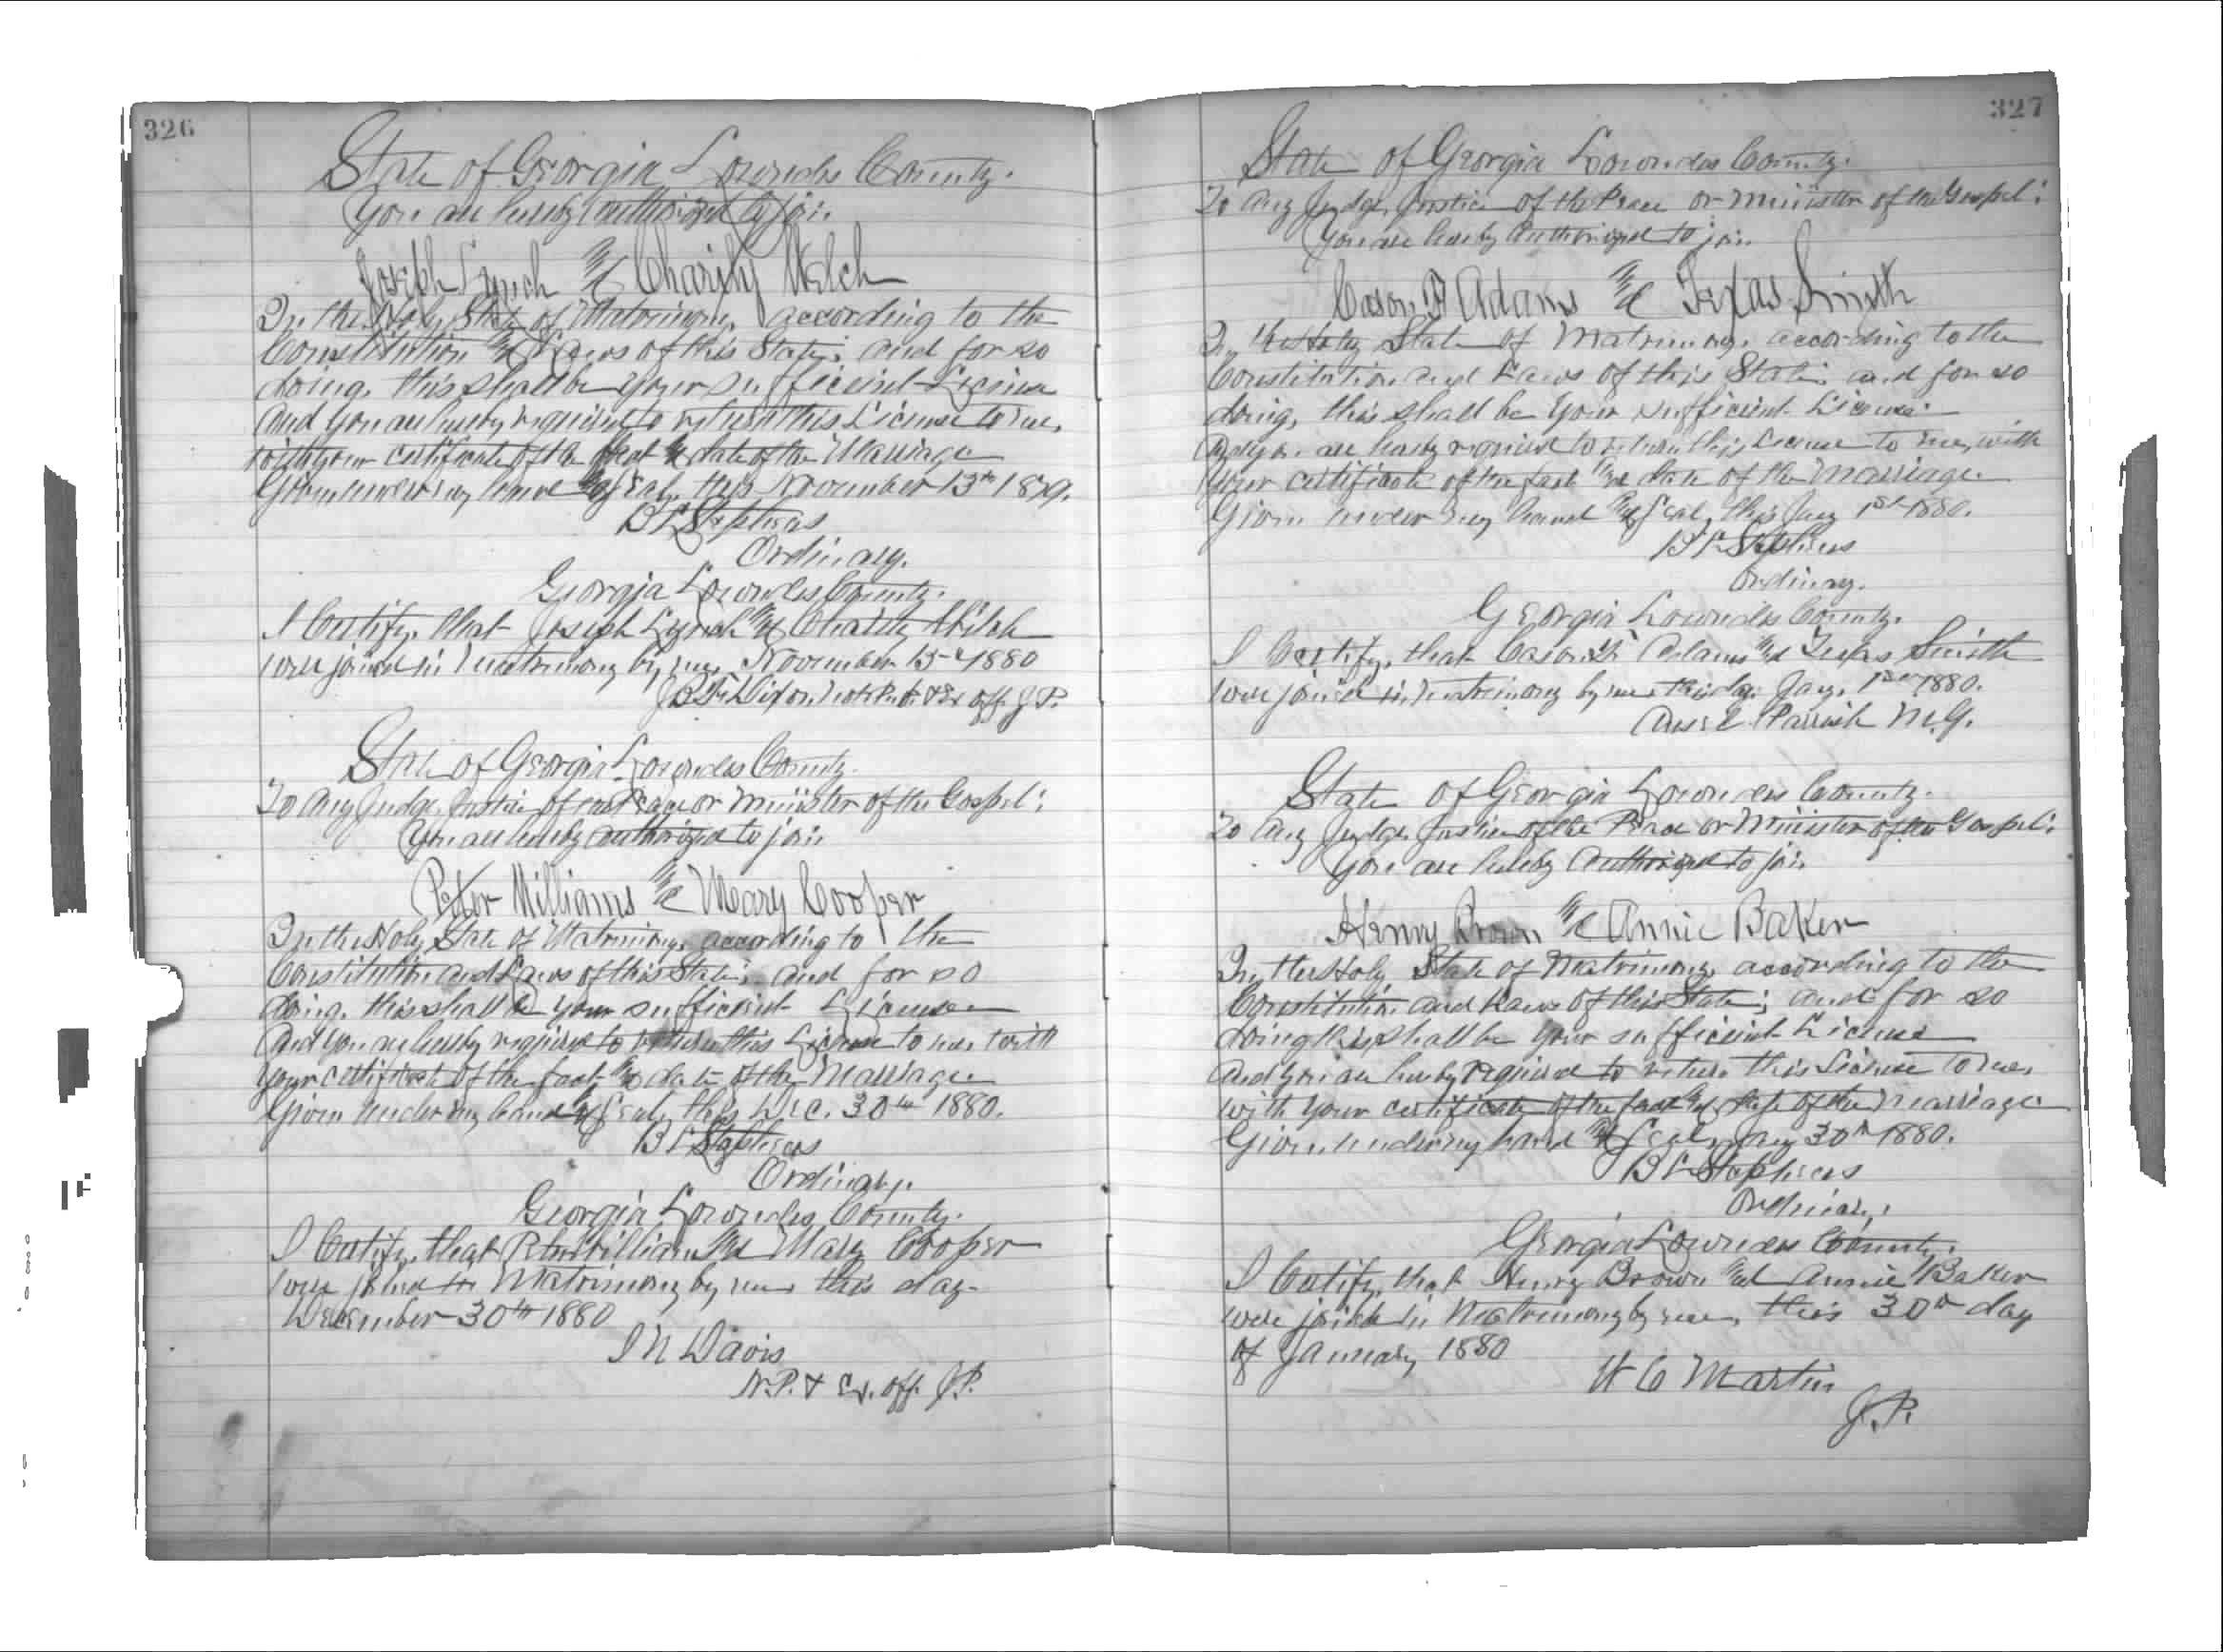 326
State of Georgia Lowndes County.
You are hereby authorized to join
Joseph Lynch & Charity Welch
In the Holy State of Matrimony, according to the
Constitution & Laws of this State; and for so
doing, this shall be your sufficient License
And you are hereby required to return this License to me,
with your certificate of the fact & date of the Marriage
Given under my hand & seal, this November 13th 1879.
B F Stephens
Ordinary.
Georgia Lowndes County.
I Certify, that Joseph Lynch & Charity Welch
were joined in matrimony by me, November 15 1880
Dixon, Not. Pub. & Ex off. J.P.
State of Georgia Lowndes County.
To Any Judge, Justice of the Peace or Minister of the Gospel:
You are hereby authorized to join
Peter Williams & Mary Cooper
In the Holy State of Matrimony, according to the
Constitution and Laws of this State; and for so
doing, this shall be your sufficient License
And you are hereby required to return this License to me, with
your certificate of the fact & date of the Marriage
Given under my hand & seal, this Dec. 30th 1880.
B F Stephens
Ordinary.
Georgia Lowndes County.
I Certify, that Peter Williams & Mary Cooper
were joined in Matrimony by me this day
December 30th 1880
I N Davis
N.P. & Ex. off. J.P.
327
State of Georgia Lowndes County.
To Any Judge, Justice of the Peace or Minister of the Gospel:
You are hereby authorized to join
Cason F Adams & Texas Smith
In the Holy State of Matrimony, according to the
Constitution and Laws of this State; and for so
doing, this shall be your sufficient License
And you are hereby required to return this License to me, with
your certificate of the fact & date of the Marriage.
Given under my hand & seal, this Jany 1st 1880.
B F Stephens
Ordinary.
Georgia Lowndes County.
I Certify, that Cason F Adams & Texas Smith
were joined in matrimony by me this day Jany. 1st 1880.
Ansel Parrish M.G.
State of Georgia Lowndes County.
To Any Judge, Justice of the Peace or Minister of the Gospel:
You are hereby authorized to join
Henry Brown & Annie Baker
In the Holy State of Matrimony, according to the
Constitution and Laws of this State; and for so
doing this shall be your sufficient License
And you are hereby required to return this License to me,
with your certificate of the fact & date of the Marriage
Given under my hand & seal, Jany 30th 1880.
B F Stephens
Ordinary.
Georgia Lowndes County.
I Certify, that Henry Brown & Annie Baker
were joined in Matrimony by me, this 30th day
of January 1880
W C Martin
J.P.